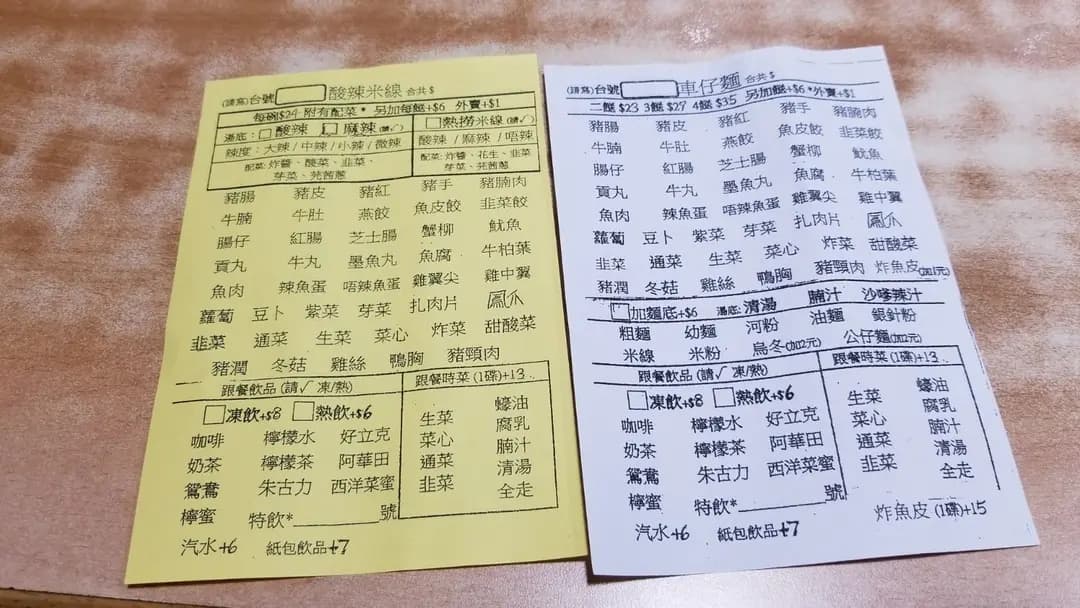 (請寫)台號 酸辣米線 合共$
每碗$24 附有配菜* 另加每餸+$6 外賣+$1
湯底: 酸辣 麻辣(請✓)
辣度: 大辣/中辣/小辣/微辣
配菜: 炸醬、酸菜、韭菜、
芽菜、芫茜蔥
熱撈米線(請✓)
酸辣/麻辣/唔辣
配菜: 炸醬、花生、韭菜
芽菜、芫茜蔥
豬腸 豬皮 豬紅 豬手 豬腩肉
牛腩 牛肚 燕餃 魚皮餃 韭菜餃
腸仔 紅腸 芝士腸 蟹柳 魷魚
貢丸 牛丸 墨魚丸 魚腐 牛柏葉
魚肉 辣魚蛋 唔辣魚蛋 雞翼尖 雞中翼
蘿蔔 豆卜 紫菜 芽菜 扎肉片 鳳爪
韭菜 通菜 生菜 菜心 炸菜 甜酸菜
豬潤 冬菇 雞絲 鴨胸 豬頸肉
跟餐飲品(請✓ 凍/熱)
凍飲+$8 熱飲+$6
咖啡 檸檬水 好立克
奶茶 檸檬茶 阿華田
鴛鴦 朱古力 西洋菜蜜
檸蜜 特飲*________號
汽水+6 紙包飲品+7
跟餐時菜(1碟)+13
生菜 蠔油
菜心 腐乳
通菜 腩汁
韭菜 清湯
全走
(請寫)台號 車仔麵 合共$
二餸$23 3餸$29 4餸$35 另加餸+$6 *外賣+$1
豬腸 豬皮 豬紅 豬手 豬腩肉
牛腩 牛肚 燕餃 魚皮餃 韭菜餃
腸仔 紅腸 芝士腸 蟹柳 魷魚
貢丸 牛丸 墨魚丸 魚腐 牛柏葉
魚肉 辣魚蛋 唔辣魚蛋 雞翼尖 雞中翼
蘿蔔 豆卜 紫菜 芽菜 扎肉片 鳳爪
韭菜 通菜 生菜 菜心 炸菜 甜酸菜
豬潤 冬菇 雞絲 鴨胸 豬頸肉 炸魚皮(加1元)
加麵底+$6 湯底: 清湯 腩汁 沙嗲辣汁
粗麵 幼麵 河粉 油麵 銀針粉
米線 米粉 烏冬(加2元) 公仔麵(加2元)
跟餐飲品(請✓ 凍/熱)
凍飲+$8 熱飲+$6
咖啡 檸檬水 好立克
奶茶 檸檬茶 阿華田
鴛鴦 朱古力 西洋菜蜜
檸蜜 特飲*________號
汽水+6 紙包飲品+7
跟餐時菜(1碟)+13
生菜 蠔油
菜心 腐乳
通菜 腩汁
韭菜 清湯
全走
炸魚皮(1碟)+15